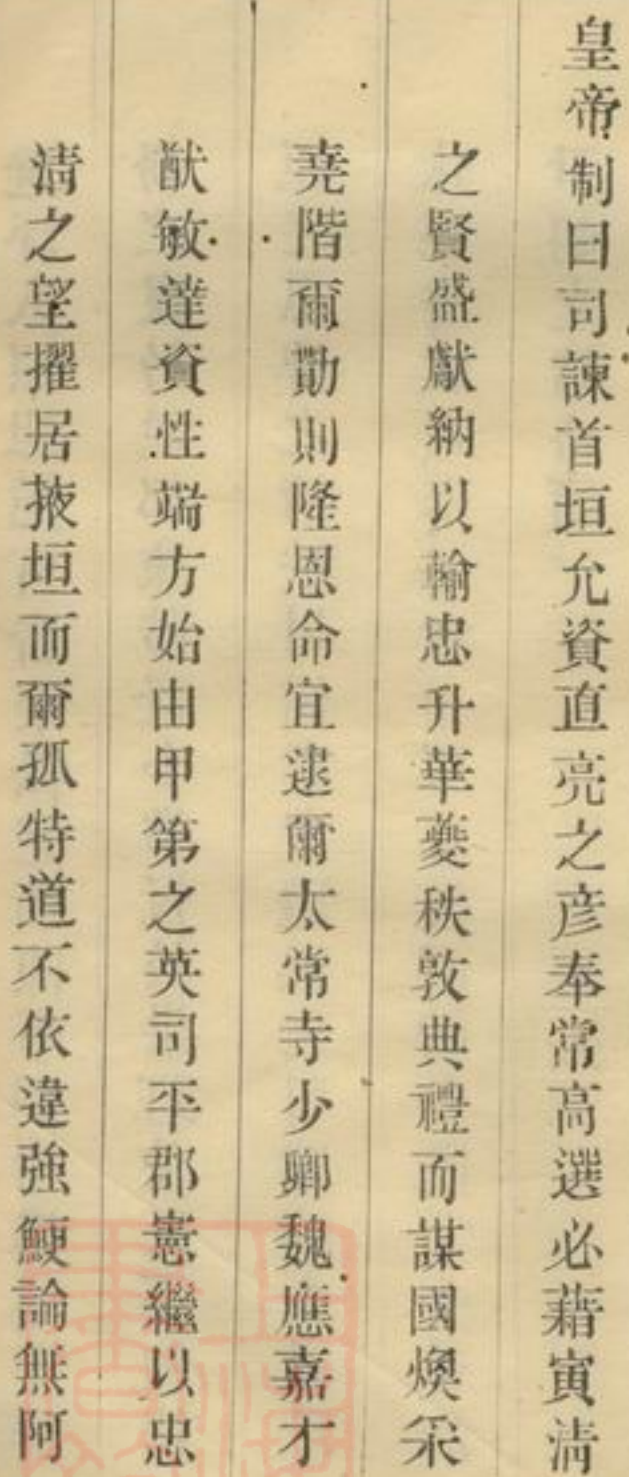 皇帝制曰司諫首垣允資直亮之彦奉常高選必藉寅清
之賢盛獻納以輸忠升華夔秩敦典禮而謀國煥采
堯階爾勛則隆恩命宜逮爾太常寺少卿魏應嘉才
猷敏達資性端方始由甲第之英司平郡憲繼以忠
清之望擢居掖垣而爾孤特道不依違強鯁論無阿